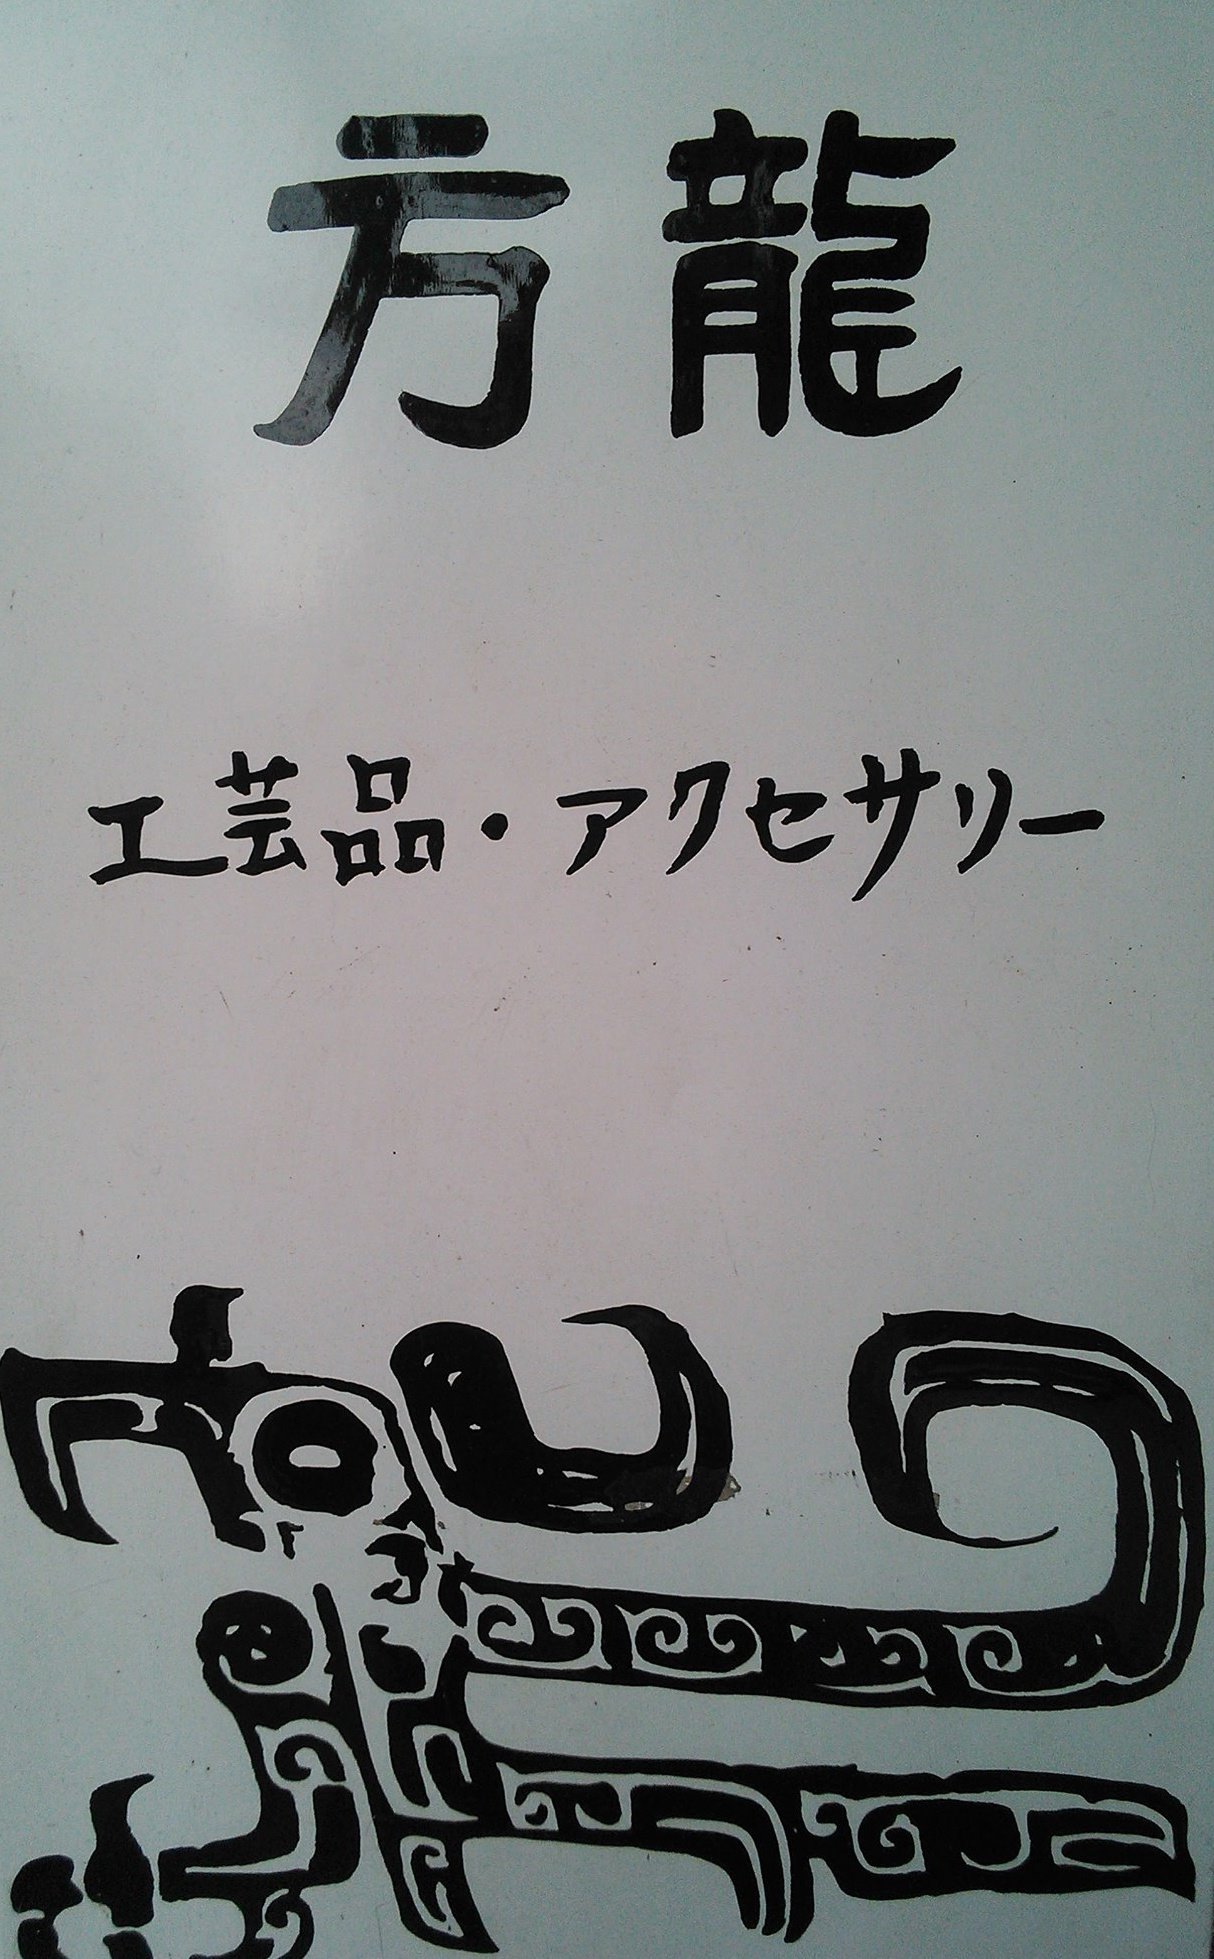 方龍
工芸品・アクセサリー